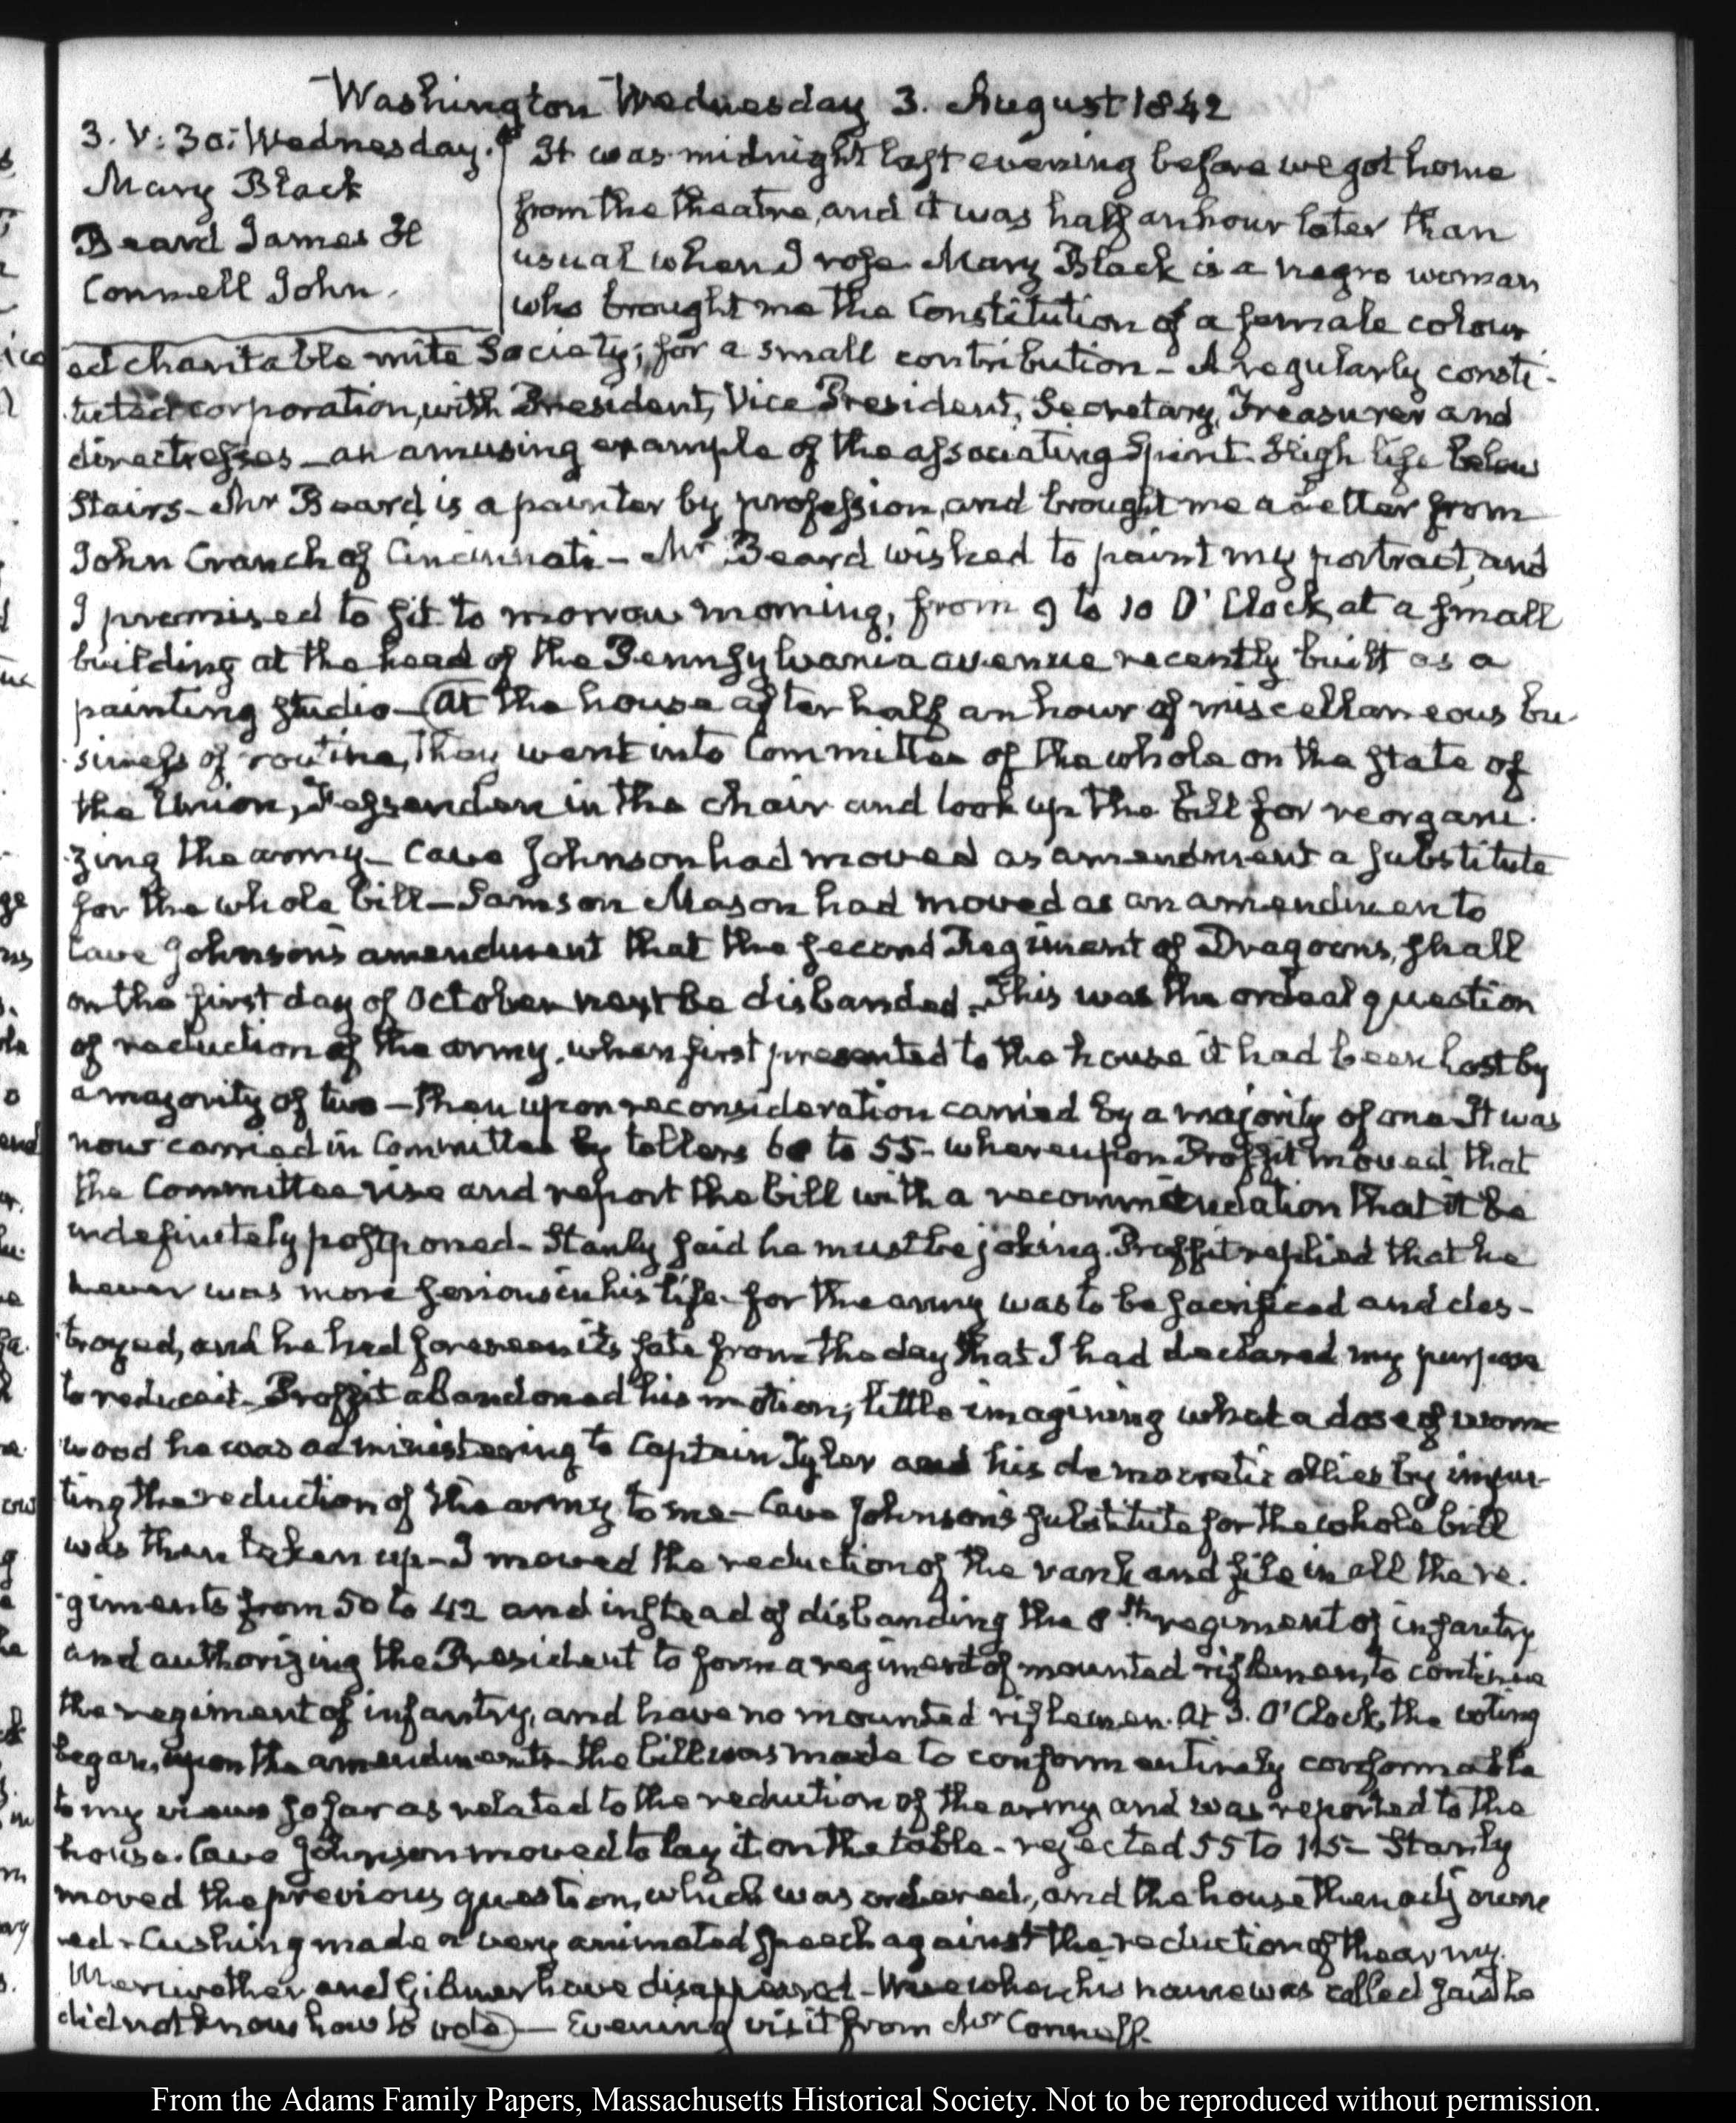 Washington Wednesday 3. August 1842
3. V: 30: Wednesday.
Mary Black
Beard James H
Connell John.
It was midnight last evening before we got home
from the theatre, and it was half an hour later than
usual when I rose. Mary Black is a negro woman
who brought me the Constitution of a female colour
ed charitable mite Society; for a small contribution - A regularly consti-
tuted corporation, with President, Vice President, Secretary, Treasurer and
directresses - an amusing example of the associating Spirit. High life below
Stairs - Mr Beard is a painter by profession, and brought me a Letter from
John Cranch of Cincinnati - Mr Beard wished to paint my portrait, and
I promised to sit to morrow morning, from 9 to 10 O'Clock, at a small
building at the head of the Pennsylvania avenue recently built as a
painting studio - (At the house after half an hour of miscellaneous bu-
siness of routine, they went into Committee of the whole on the state of
the Union, Fessenden in the chair and took up the bill for reorgani-
zing the army - Cave Johnson had moved as amendment a substitute
for the whole bill - Samson Mason had moved as an amendment to
Cave Johnson's amendment that the second Regiment of Dragoons, shall
on the first day of October next be disbanded. This was the ordeal question
of reduction of the army. when first presented to the house it had been lost by
a majority of two - then upon reconsideration carried by a majority of one It was
now carried in Committee by tellers 60 to 55 - whereupon Proffit moved that
the Committee rise and report the bill with a recommendation that it be
indefinitely postponed - Stanly said he must be joking. Proffit replied that he
never was more serious in his life - for the army was to be sacrificed and des-
troyed, and he had foreseen its fate from the day that I had declared my purpose
to reduce it - Proffit abandoned his motion; little imagining what a dose of worm
wood he was administering to Captain Tyler and his democratic allies by impu-
ting the reduction of the army to me - Cave Johnson's substitute for the whole bill
was then taken up - I moved the reduction of the rank and file in all the re-
giments from 50 to 42 and instead of disbanding the 8th regiment of infantry
and authorizing the President to form a regiment of mounted riflemen, to continue
the regiment of infantry, and have no mounted riflemen. At 3. O'Clock, the voting
began, upon the amendments - the bill was made to conform entirely conformable
to my views so far as related to the reduction of the army, and was reported to the
house. Cave Johnson moved to lay it on the table - rejected 55 to 115 - Stanly
moved the previous question, which was ordered, and the house then adjourn
ed - Cushing made a very animated speech against the reduction of the army.
Meriwether and Gilmer have disappeared - Wise when his name was called said he
did not know how to vote) - Evening visit from Mr Connell.
From the Adams Family Papers, Massachusetts Historical Society. Not to be reproduced without permission.